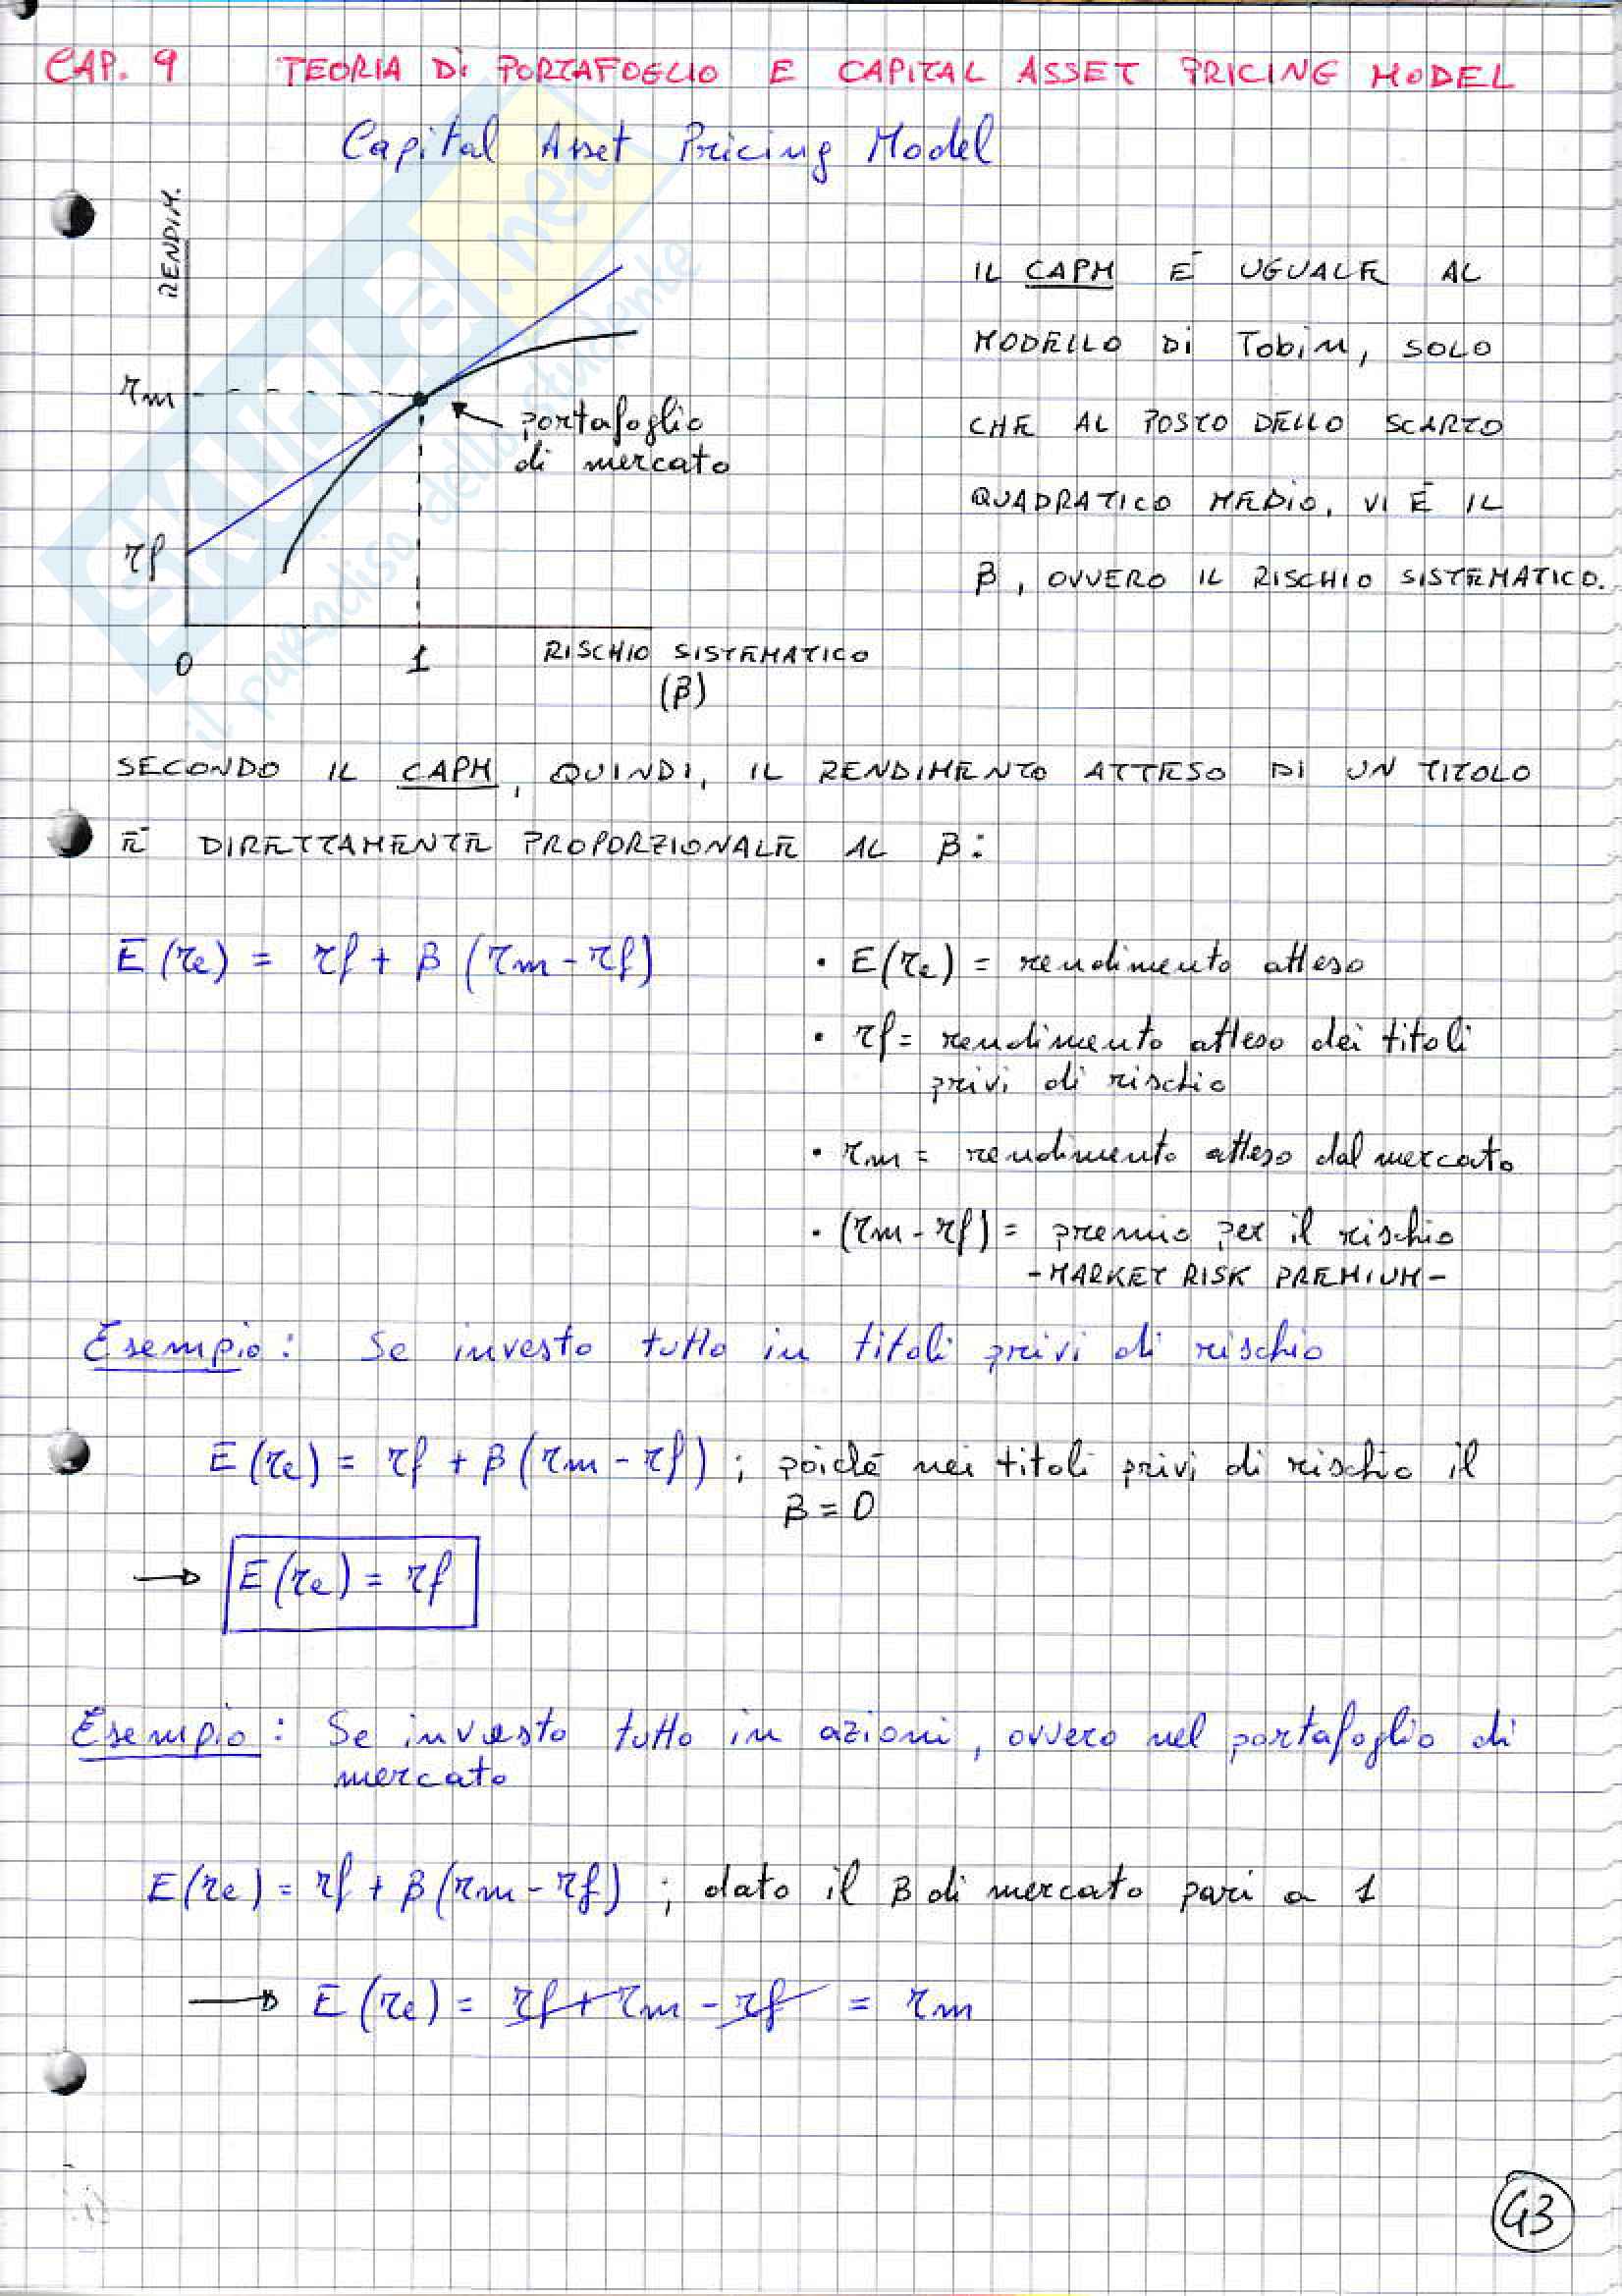 CAP. 9 TEORIA Di PORTAFOGLIO E CAPITAL ASSET PRICING MODEL
Capital Asset Pricing Model
RENDIM.
rm
rf
0
1
portafoglio
di mercato
RISCHIO SISTEMATICO
(β)
IL CAPM È UGUALE AL
MODELLO Di Tobin, SOLO
CHE AL POSTO DELLO SCARTO
QUADRATICO MEDIO, VI È IL
β, OVVERO IL RISCHIO SISTEMATICO.
SKUOLA.net
il paradiso dello studente
SECONDO IL CAPM, QUINDI, IL RENDIMENTO ATTESO DI UN TITOLO
È DIRETTAMENTE PROPORZIONALE AL β:
E(re) = rf + β (rm - rf)
• E(re) = rendimento atteso
• rf = rendimento atteso dei titoli
privi di rischio
• rm = rendimento atteso dal mercato
• (rm - rf) = premio per il rischio
- MARKET RISK PREMIUM -
Esempio: Se investo tutto in titoli privi di rischio
E(re) = rf + β(rm - rf) ; poiché nei titoli privi di rischio il
β = 0
→ E(re) = rf
Esempio: Se investo tutto in azioni, ovvero nel portafoglio di
mercato
E(re) = rf + β(rm - rf) ; dato il β di mercato pari a 1
→ E(re) = rf + rm - rf = rm
43